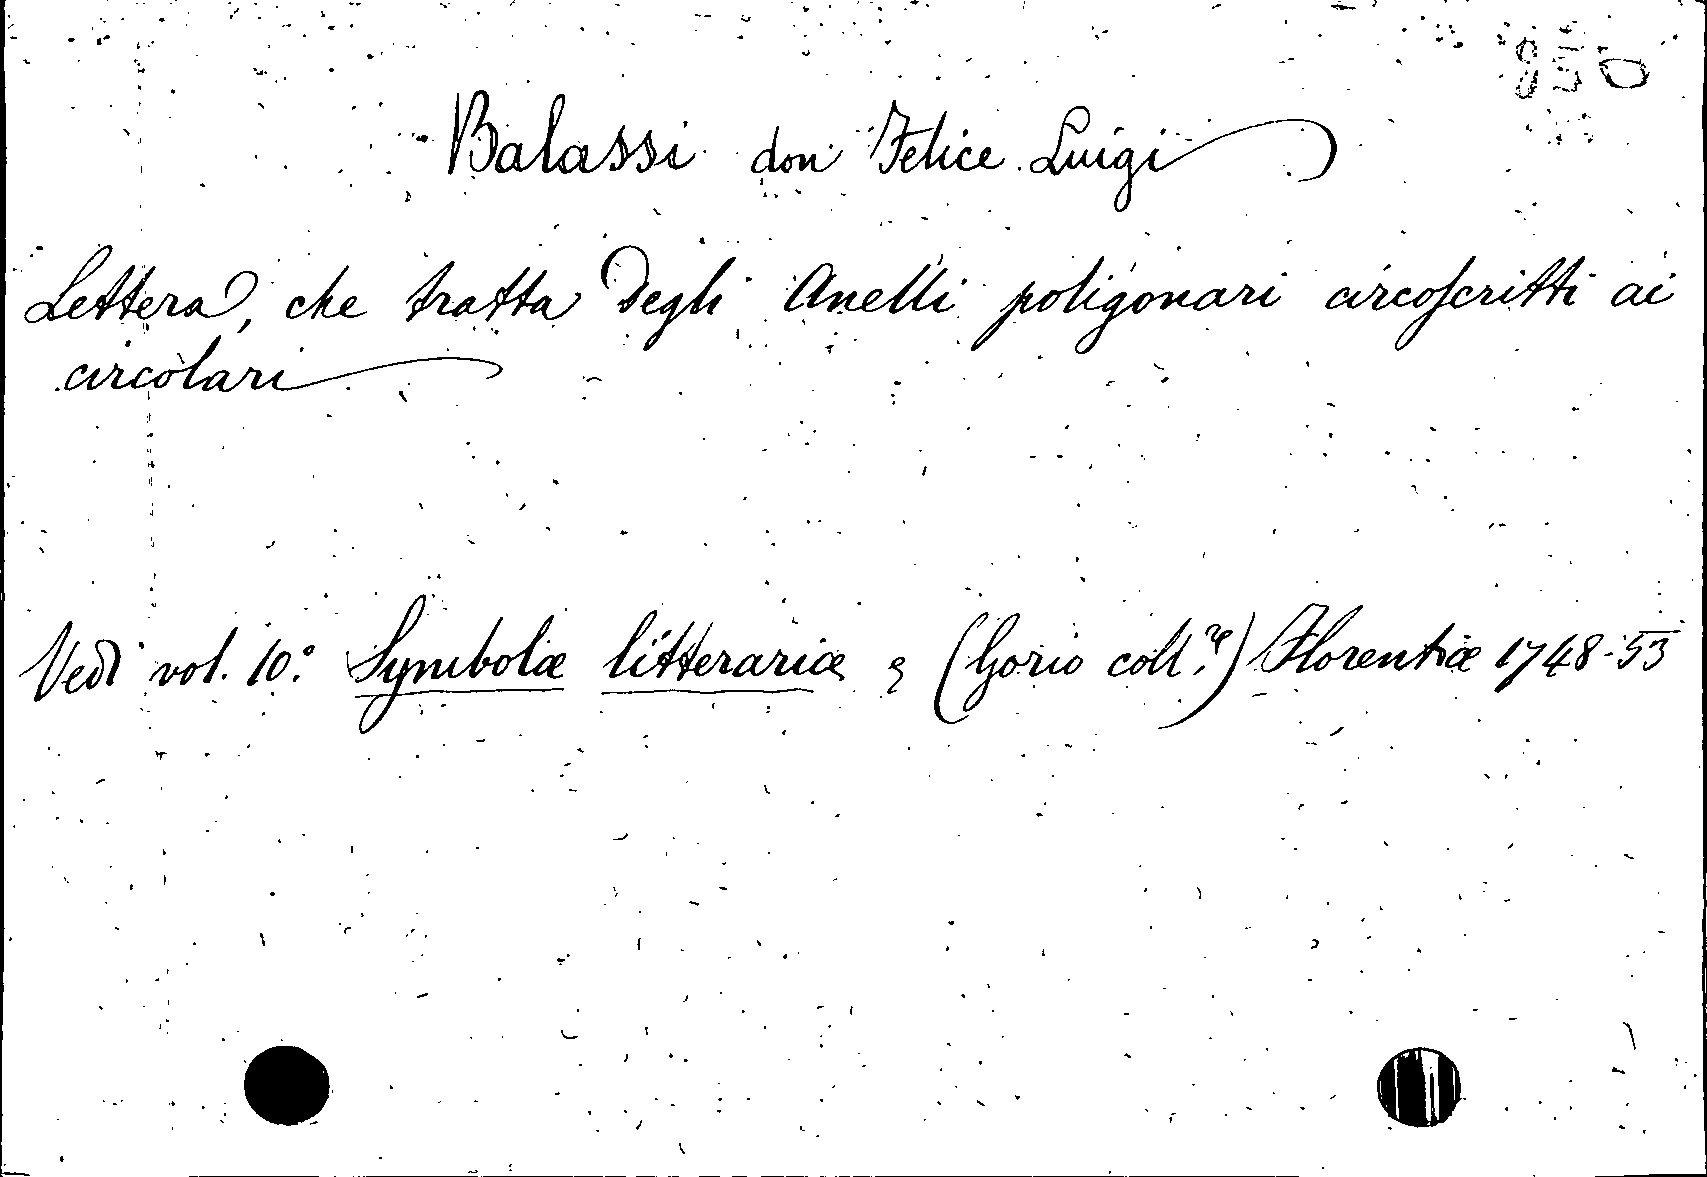 850
Balassi don Felice Luigi
Lettera, che tratta degli Anelli poligonari circoscritti ai
circolari
Vedi vol. 10.° Symbolæ litterariæ (Gorio coll.re) Florentiæ 1748-53